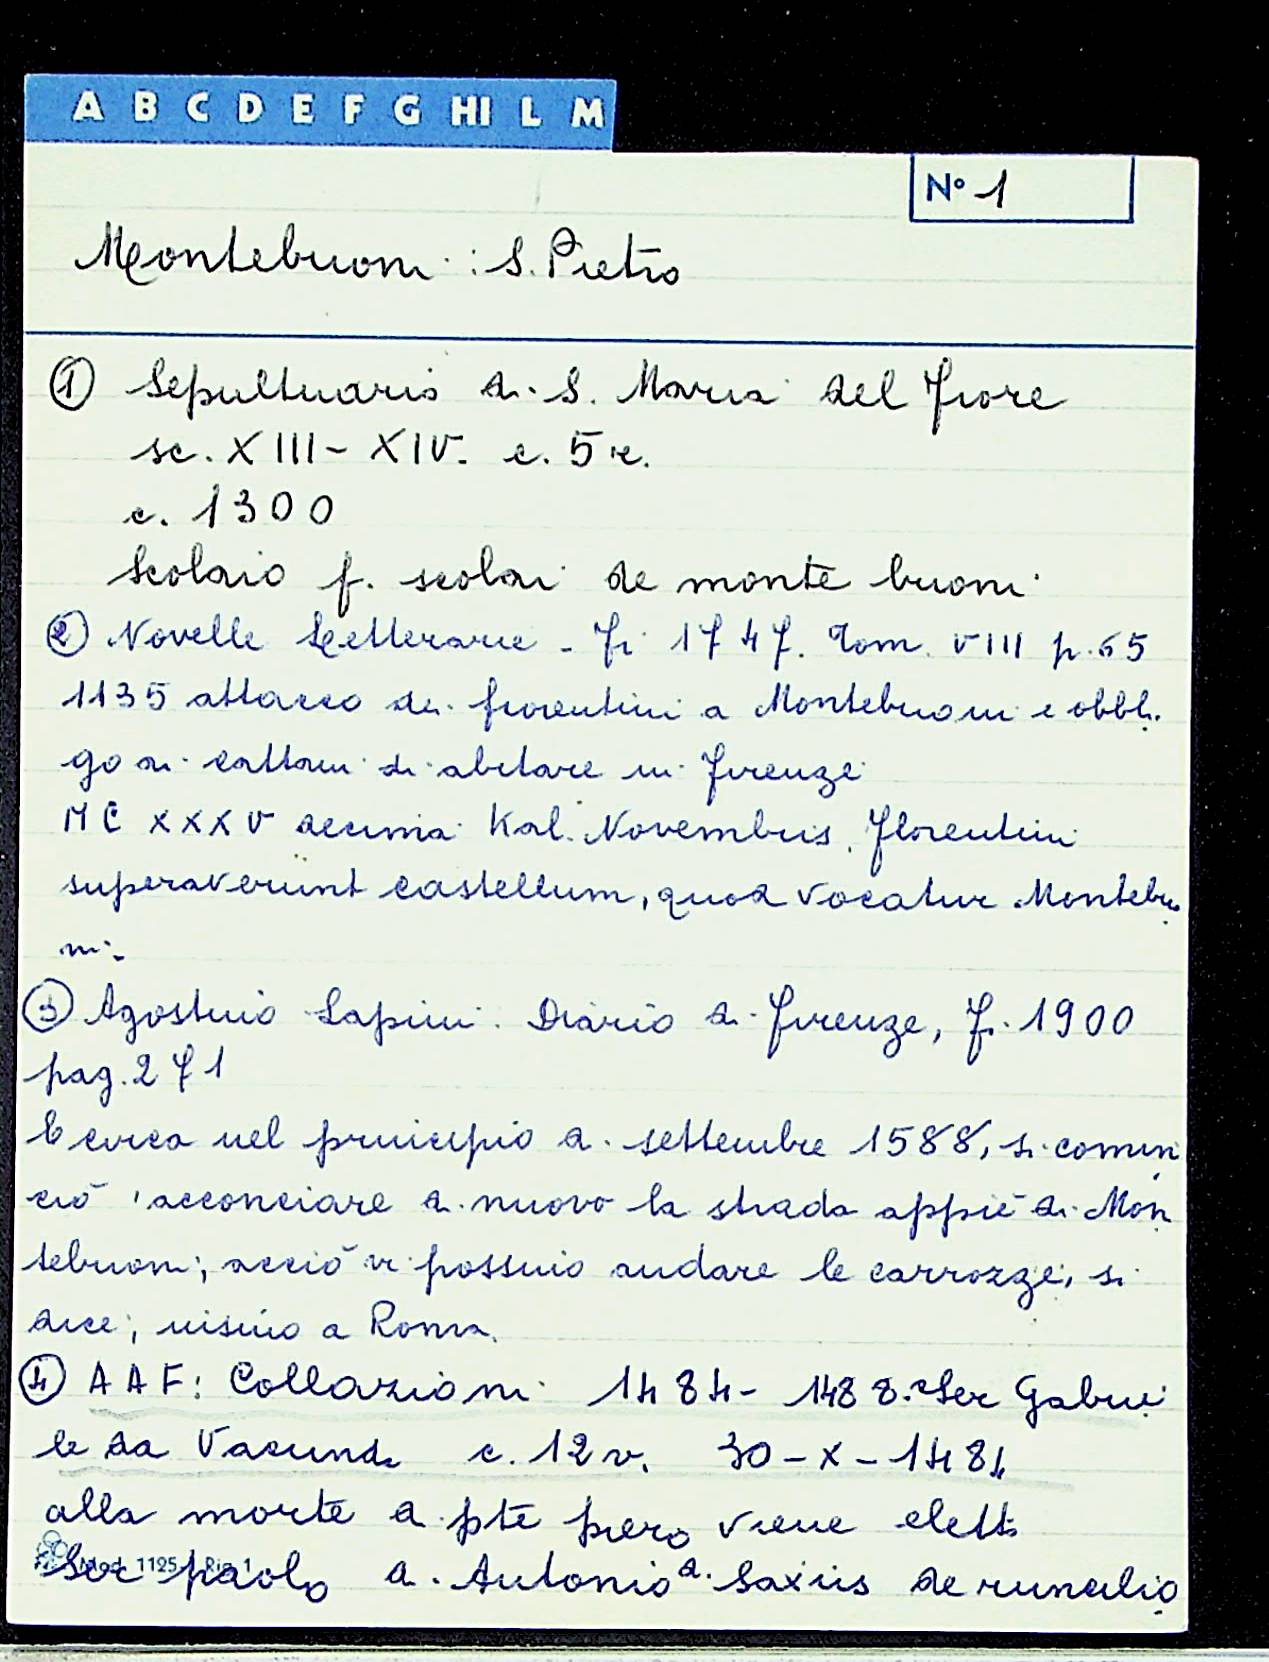 A B C D E F G HI L M
N° 1
Montebuoni : S. Pietro
① Sepultuario di S. Maria del Fiore
sc. XIII - XIV. c. 5 r.
c. 1300
Scolaio f. scolai de monte buoni
② Novelle Letterarie - Fi 1747. Tom. VIII p. 65
1135 attacco dei fiorentini a Montebuoni e obbli
go ai cattani di abitare in Firenze
MCXXXV decima Kal. Novembris, Florentini
superaverunt castellum, quod vocatur Montebuo
ni.
③ Agostino Lapini. Diario di Firenze, Fi. 1900
pag. 271
E circa nel principio di settembre 1588, si comin
ciò 'acconciare di nuovo la strada appiè di Mon
tebuoni, acciò vi possino andare le carrozze, si
dice, insino a Roma.
④ AAF: Collazioni 1484 - 1488. Ser Gabrie
le da c. 12 v. 30 - X - 1484
alla morte di pte piero viene eletto
Mod. 1125 Rig. 1
Ser paolo di Antonio di Saxiis de